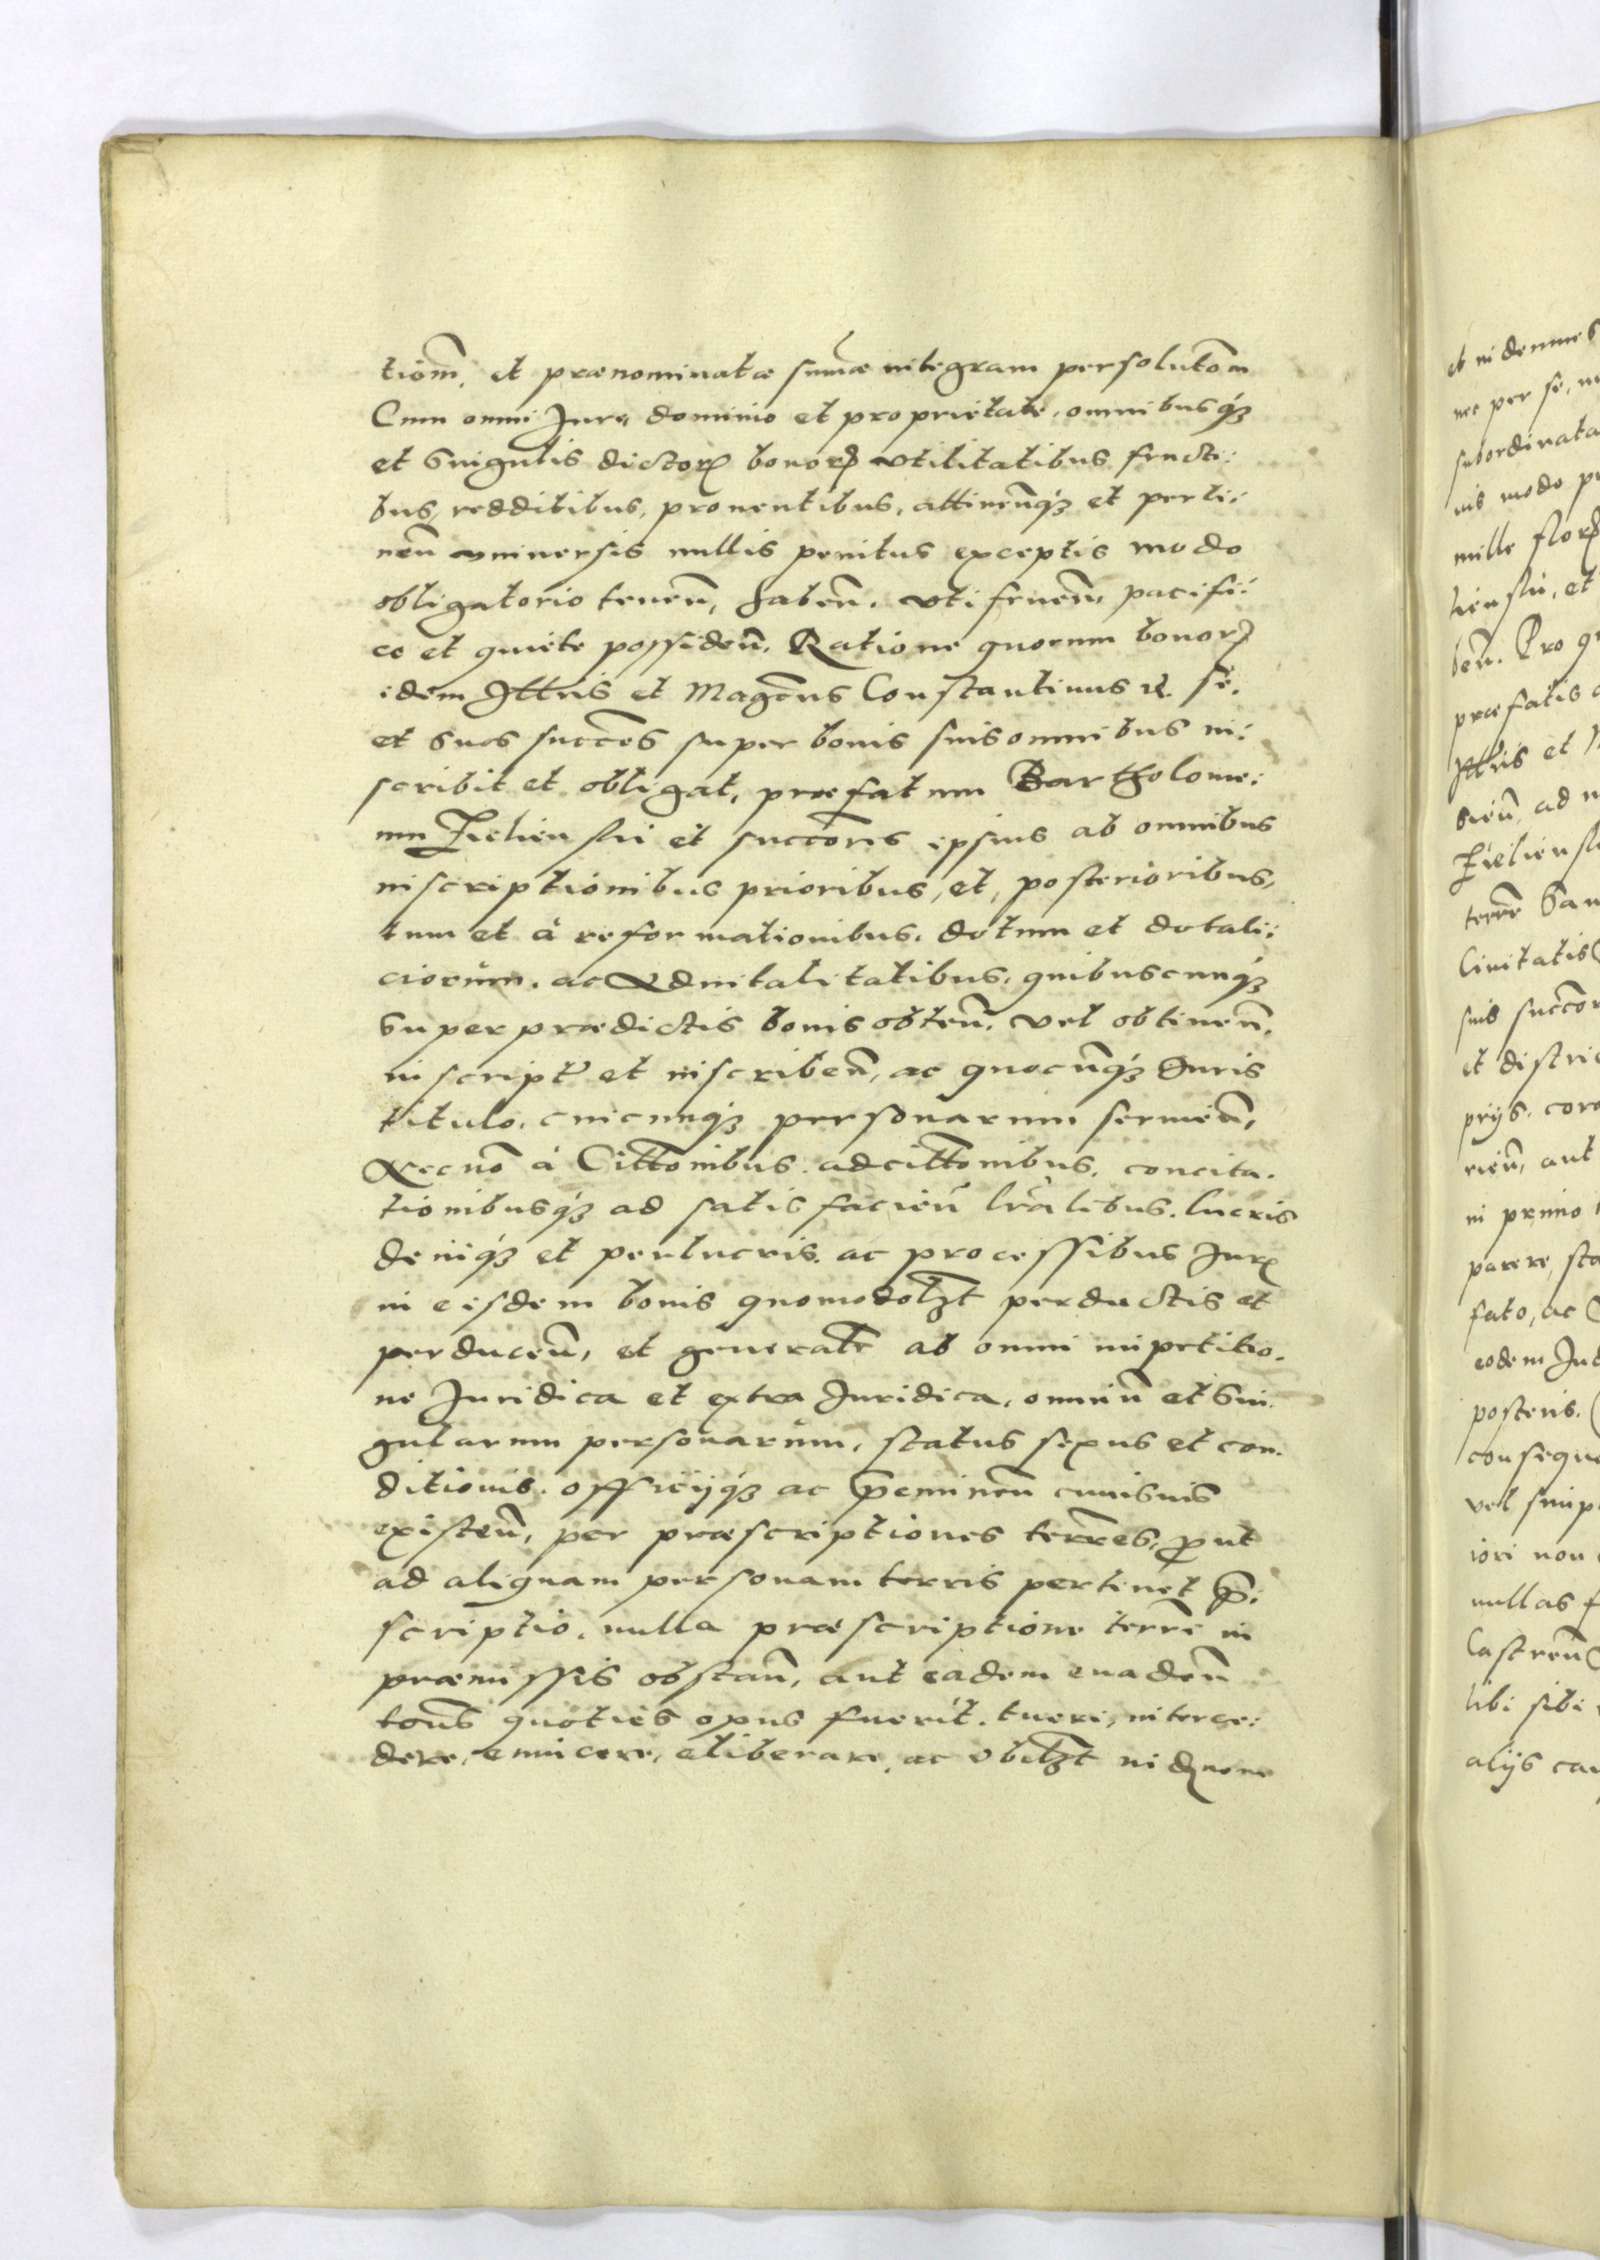 tiom̃, et prænominatæ sum̃æ integram persolutõm
Cum omni Jure, dominio et proprietate, omnibusqꝫ
et singulis dictorꝝ bonorꝝ utilitatibus fructi:
bus, redditibus, prouentibus, attinen̄qꝫ et perti:
nen̄ uniuersis nullis penitus exceptis modo
obligatorio tenen̄, haben̄, vti fruen̄, pacifi:
ce et quiete possiden̄, Ratione quorum bonorꝝ
idem Illr̄is et Magc̄us Constantinus &c. se,
et suos succēs super bonis suis omnibus in:
scribit et obligat, præfatum Bartholome:
um Zielienski et succ̄ores ipsius ab omnibus
inscriptionibus prioribus, et, posterioribus,
tum et à reformationibus, dotum et dotali:
ciorum, ac Aduitalitatibus, quibuscunqꝫ
super prædictis bonis obten̄, vel obtinen̄,
inscript̄ et inscriben̄, ac quocun̄qꝫ Juris
titulo, cuicunqꝫ personarum seruien̄,
Necnō à Citt̄onibus, adcitt̄onibus, concita.
tionibusqꝫ ad satis facien̄ lr̄alibus, lucris
deniqꝫ et perlucris, ac processibus Jurꝭ
in eisdem bonis quomodolꝫt perductis et
perducen̄, et generalr̄ ab omni impetitio,
ne Juridica et extra Juridica, omniū et sin
gularum personarum, status sexus et con.
ditionis, officijqꝫ ac p̄eminen̄ cuiusuis
existen̄, per præscriptiones terr̄es, ꝓut
ad aliquam personam terris pertinet p̄:
scriptio, nulla præscriptione terr̄e in
præmissis obstan̄, aut eadem euaden̄
toēns quoties opus fuerit, tueri, interce:
dere, euincere, eliberare, ac vbilꝫt
et indemnes
nec per se,
subordinata
uis modo
mille florꝝ
lienski, et
ben̄. Pro
præfatis
Illr̄is et
ad
Zielienski
terr̄e
Ciuitatis
suis succ̄or
et
prijs,
aut
in primo
parere,
fato, ac
eodem
posteris.
vel
iori non
nullas
Castren̄
tibi sibi
alijs